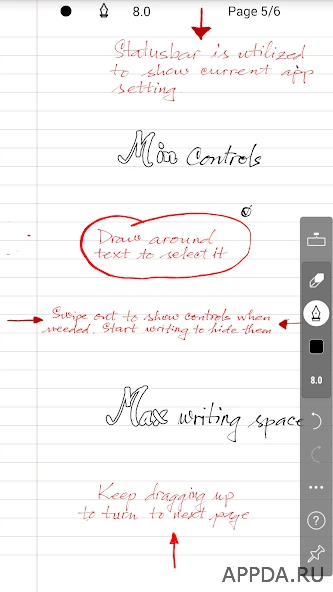 8.0 Page 5/6
Statusbar is utilized
to show current app
setting
Min Controls
Draw around
text to select it
Swipe out to show controls when
needed. Start writing to hide them
8.0
Max writing space
Keep dragging up
to turn to next page
APPDA.RU